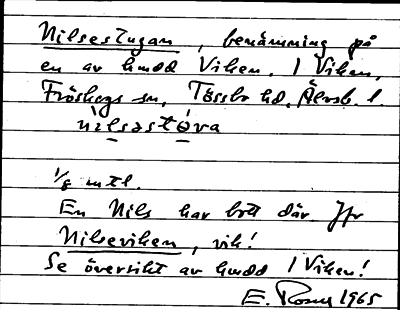 Nilsestugan, benämning på
en av hmdd Viken. I Viken,
Fröskogs sn, Tössbo hd, Älvsb. l.
nilsastova
1/8 mtl.
En Nils har bott där. Jfr
Nilseviken, vik!
Se översikt av hmdd I Viken!
E. 1965